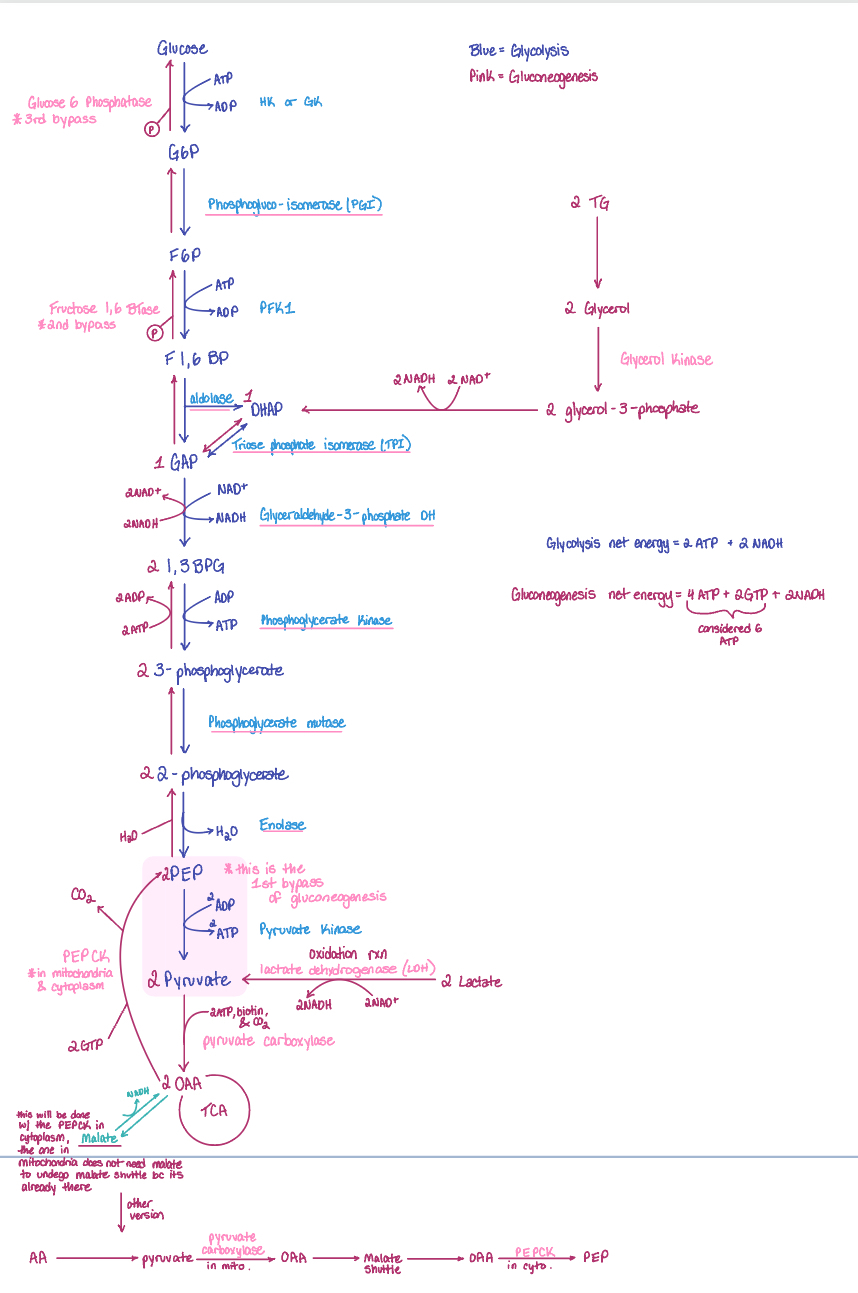 Glucose
Blue = Glycolysis
Pink = Gluconeogenesis
ATP
ADP
HK or GK
Glucose 6 Phosphatase
*3rd bypass
P
G6P
Phosphogluco-isomerase (PGI)
2 TG
F6P
ATP
ADP
PFK1
Fructose 1,6 BTase
*2nd bypass
P
2 Glycerol
Glycerol Kinase
F 1,6 BP
aldolase
1
DHAP
2 NADH
2 NAD+
2 glycerol-3-phosphate
Triose phosphate isomerase (TPI)
1 GAP
2NAD+
2NADH
NAD+
NADH
Glyceraldehyde-3-phosphate DH
Glycolysis net energy = 2 ATP + 2 NADH
2 1,3 BPG
Gluconeogenesis net energy = 4 ATP + 2GTP + 2NADH
considered 6
ATP
2ADP
2ATP
ADP
ATP
Phosphoglycerate Kinase
2 3-phosphoglycerate
Phosphoglycerate mutase
2 2-phosphoglycerate
H2O
H2O
Enolase
2PEP
*this is the
1st bypass
of gluconeogenesis
CO2
2
ADP
2
ATP
Pyruvate Kinase
PEPCK
*in mitochondria
& cytoplasm
2 Pyruvate
oxidation rxn
lactate dehydrogenase (LDH)
2 Lactate
2NADH
2NAD+
2ATP, biotin,
& CO2
pyruvate carboxylase
2GTP
2 OAA
TCA
NADH
Malate
this will be done
w/ the PEPCK in
cytoplasm,
the one in
mitochondria does not need malate
to undego malate shuttle bc its
already there
other
version
AA
pyruvate
pyruvate
carboxylase
in mito.
OAA
Malate
shuttle
OAA
PEPCK
in cyto.
PEP